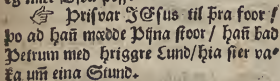 ☞ Prisvar JESus til þra foor /
þo ad hañ mædde Pijna stoor / hañ bad
Petrum med hriggre Lund / hia sier va-
ka um eina Stund.